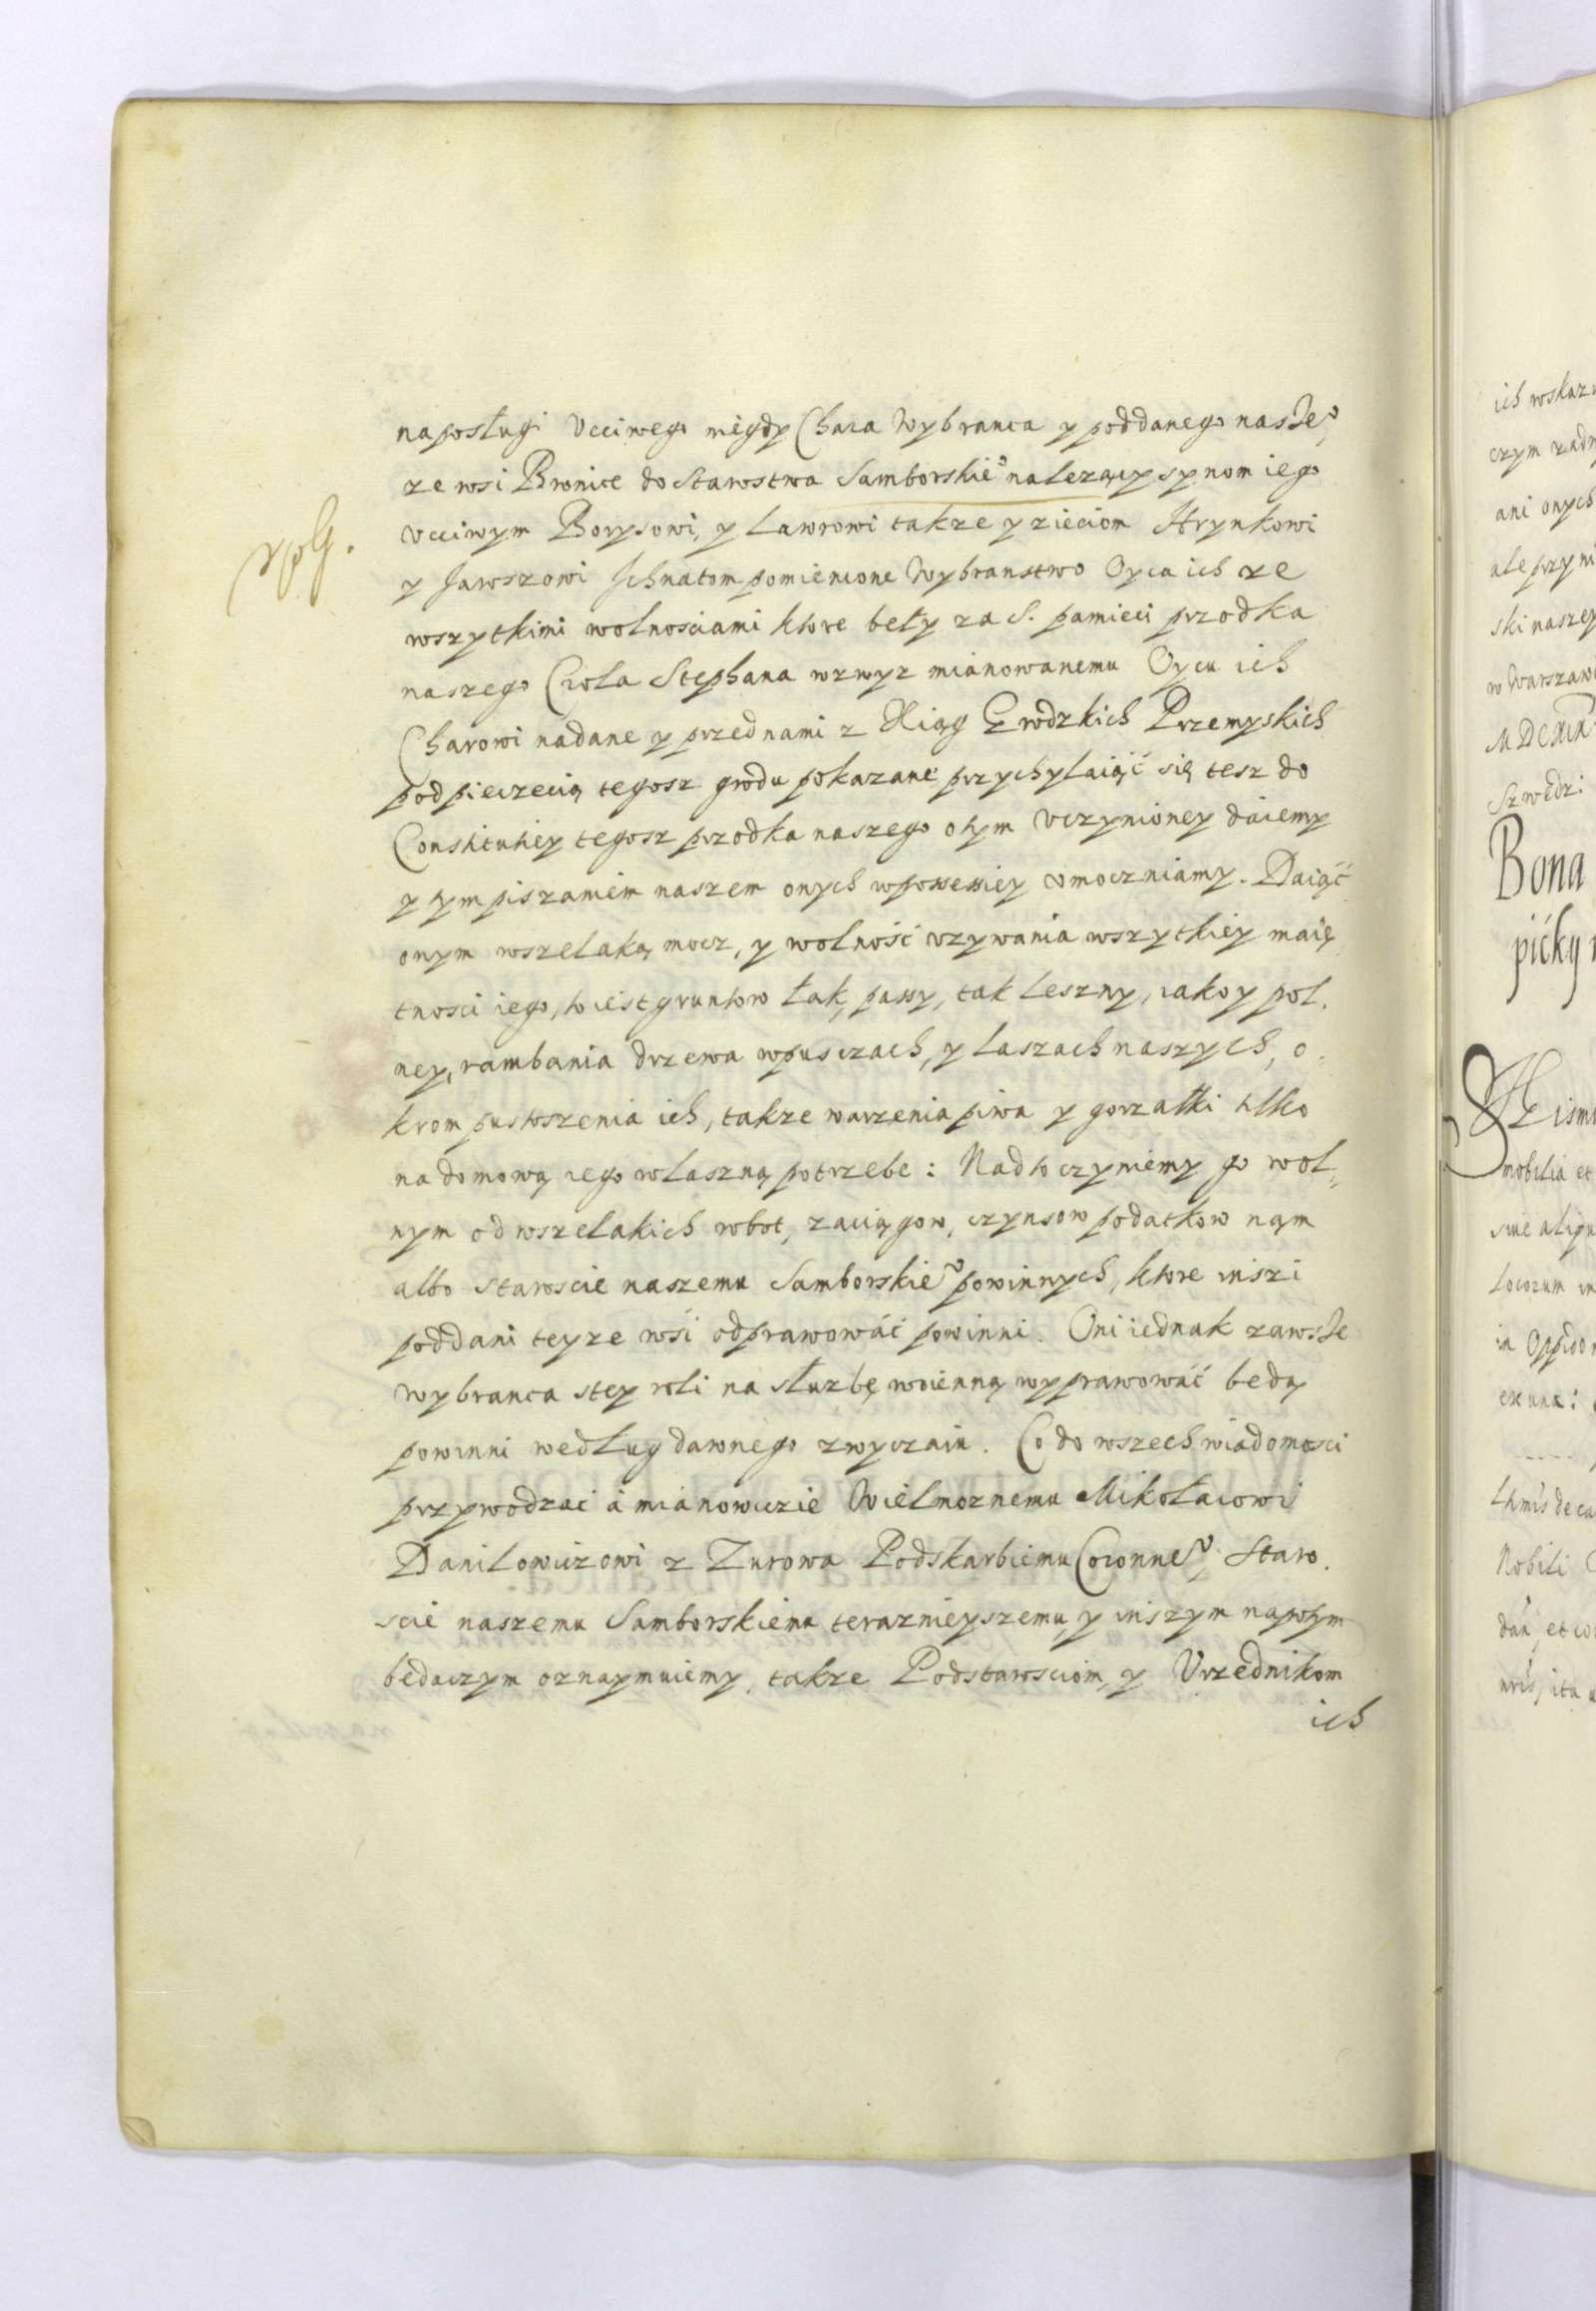 na posługi Ucciwego niegdy Chara Wybranca y poddanego nasze°
ze wsi Bronice do Starostwa Samborskie° nalezący synom iego
ucciwym Borysowi, y Lawrowi takze y zieciom Hrynkowi
y Jawszowi Jchnatom pomienione Wybranstwo Oyca ich ze
wszytkimi wolnosciami ktore beły za S. pamieci przodka
naszego Crola Stephana wzwyz mianowanemu Oycu ich
Charowi nadane y przed nami z Xiąg Grodzkich Przemyskich
pod pieczecią tegosz grodu pokazane przychylaiąć się tesz do
Constitutiey tegosz przodka naszego o tym uczynioney daiemy
y tym piszaniem naszem onych w possessiey umoczniamy. Daiąć
onym wszelaką mocz, y wolność uzywania wszytkiey maię
tnosci iego, to iest gruntow łak, passy, tak leszny, iako y pol.
ney, rambania drzewa w pusczach, y laszach naszych, o.
krom pustoszenia ich, takze warzenia piwa y gorzałki tilko
na domową iego wlaszną potrzebe: Nad to czyniemy go wol„
nym od wszelakich robot, zaciągow, czynsow podatkow nąm
albo Staroscie naszemu Samborskie° powinnych, ktore inszi
poddani teyze wsi odprawować powinni. Oni iednak zawsze
wybranca s tey roli na służbę woienną wyprawować będą
powinni według dawnego zwyczaiu. Co do wszech wiadomosci
przywodzac a mianowicie Wielmoznemu Mikołaiowi
Danilowiczowi z Zurowa Podskarbiemu Coronne°, Staro.
scie naszemu Samborskiemu teraznieyszemu, y inszym napotym
bedaczym oznaymuiemy, takze Podstarosciom, y Urzednikom
ich
ich
czym
ani onych
ale przy
ski naszey
w Warszaw
Bona
nobilia et
siue
Locorum
in Oppido
Nobili